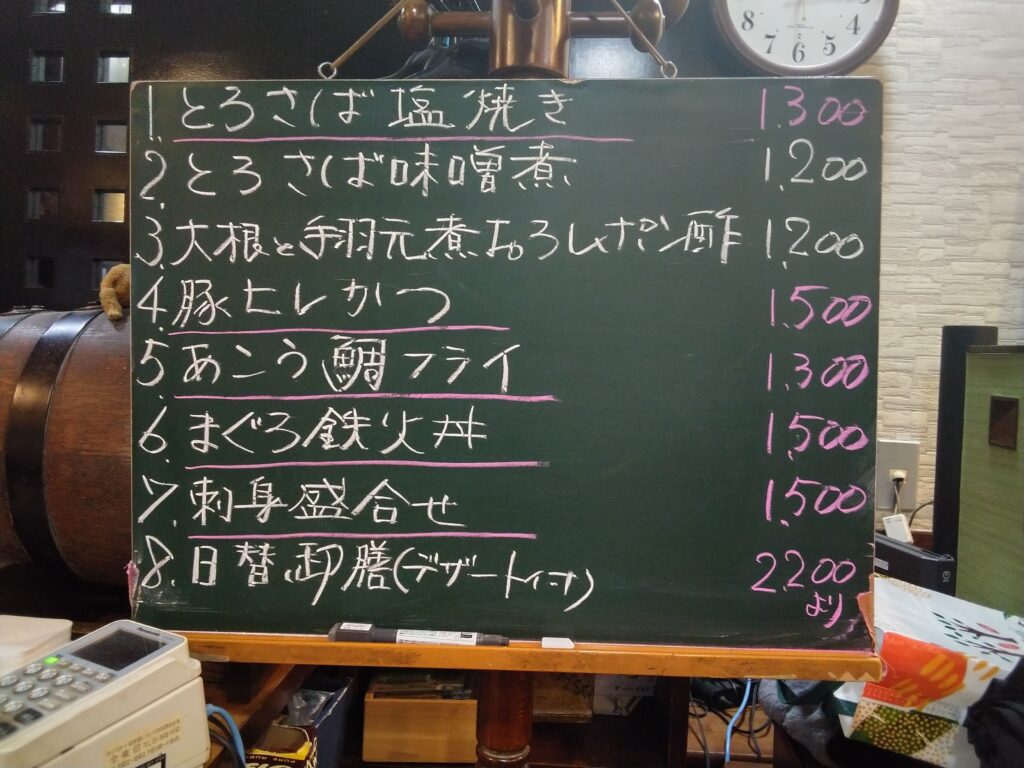 8 7 6 5 4
1. とろさば塩焼き 1.300
2. とろさば味噌煮 1.200
3. 大根と手羽元煮おろしポン酢 1.200
4. 豚ヒレかつ 1.500
5. あこう鯛フライ 1.300
6. まぐろ鉄火丼 1.500
7. 刺身盛合せ 1.500
8. 日替御膳(デザート付) 2.200
より